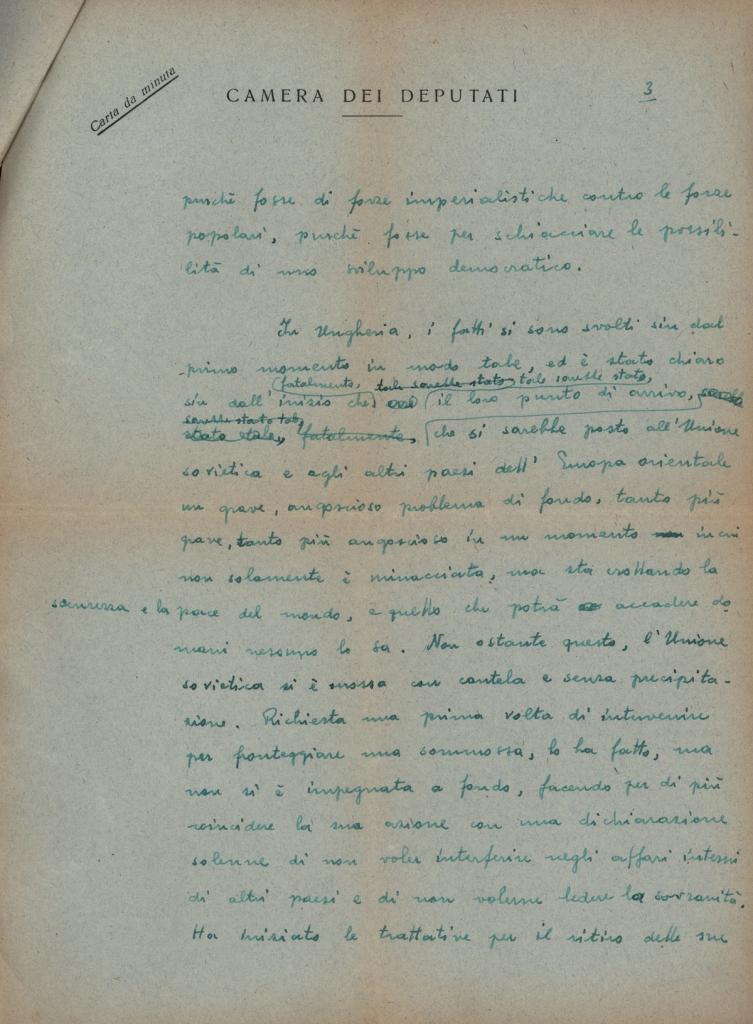 Carta da minuta
CAMERA DEI DEPUTATI
3
purché fosse di forze imperialistiche contro le forze
popolari, purché fosse per schiacciare le possibi-
lità di uno sviluppo democratico.
In Ungheria, i fatti si sono svolti sin dal
primo momento in modo tale, ed è stato chiaro
fatalmente, tale sarebbe stato tale sarebbe stato,
sin dall'inizio che il loro punto di arrivo,
sarebbe stato tale,
stato tale, fatalmente, che si sarebbe posto all'Unione
sovietica e agli altri paesi dell'Europa orientale
un grave, angoscioso problema di fondo, tanto più
grave, tanto più angoscioso in un momento in cui
non solamente è minacciata, ma sta crollando la
sicurezza e la pace del mondo, e quello che potrà accadere do
mani nessuno lo sa. Non ostante questo, l'Unione
sovietica si è mossa con cautela e senza precipita-
zione. Richiesta una prima volta di intervenire
per fronteggiare una sommossa, lo ha fatto, ma
non si è impegnata a fondo, facendo per di più
coincidere la sua azione con una dichiarazione
solenne di non voler interferire negli affari interni
di altri paesi e di non volerne ledere la sovranità.
Ha iniziato le trattative per il ritiro delle sue